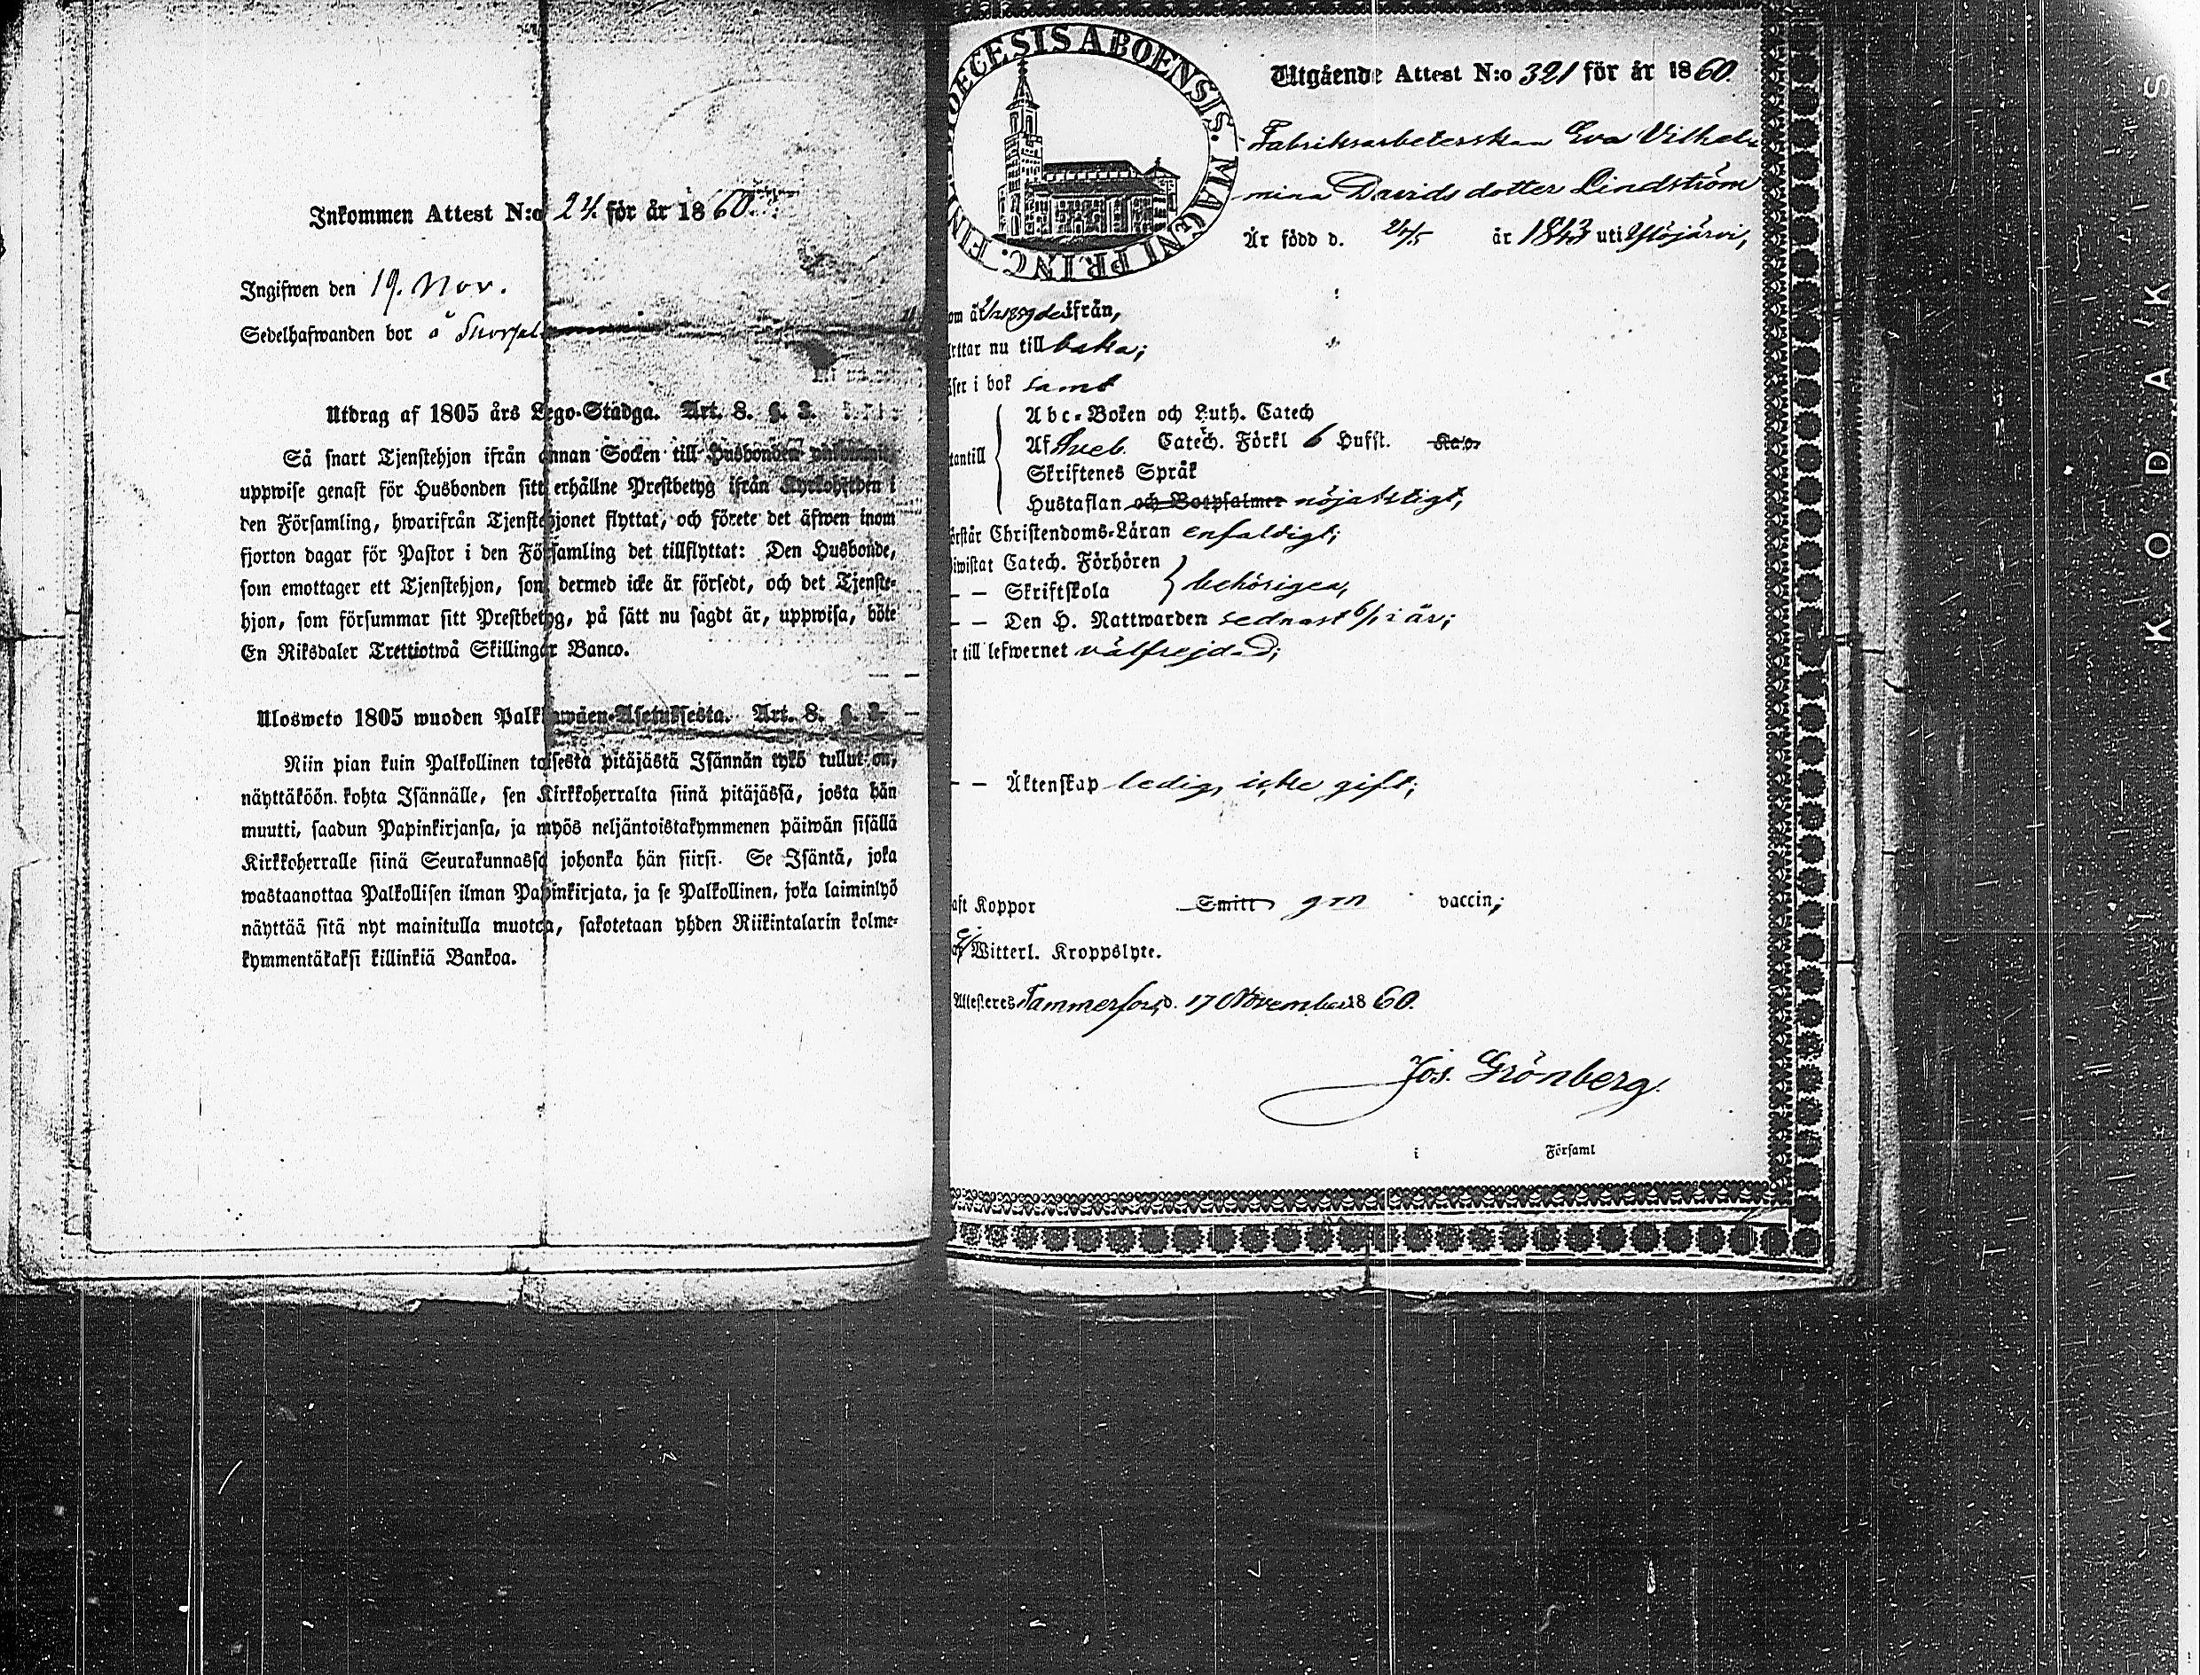 Inkommen Attest N:o 24. för år 1860.
Ingifwen den 19. Nov.
Sedelhafwanden bor å
Utdrag af 1805 års Lego-Stadga. Art. 8. §. 3.
Så snart Tjenstehjon ifrån annan Socken till Husbonden
uppwise genast för Husbonden sitt erhållne Prestbetyg ifrån Kyrkoherden i
den Församling, hwarifrån Tjenstehjonet flyttat, och förete det äfwen inom
fjorton dagar för Pastor i den Församling det tillflyttat: Den Husbonde,
som emottager ett Tjenstehjon, som dermed icke är försedt, och det Tjenste-
hjon, som försummar sitt Prestbetyg, på sätt nu sagdt är, uppwisa, böte
En Riksdaler Trettiotwå Skillingar Banco.
Ulosweto 1805 wuoden Palkkawäen-Asetuksesta. Art. 8. §. 3.
Niin pian kuin Palkollinen toisesta pitäjästä Isännän tykö tullut on,
näyttäköön kohta Isännälle, sen Kirkkoherralta siinä pitäjässä, josta hän
muutti, saadun Papinkirjansa, ja myös neljäntoistakymmenen päiwän sisällä
Kirkkoherralle siinä Seurakunnassa johonka hän siirsi. Se Isäntä, joka
wastaanottaa Palkollisen ilman Papinkirjata, ja se Palkollinen, joka laiminlyö
näyttää sitä nyt mainitulla muotoa, sakotetaan yhden Riikintalarin kolme-
kymmentäkaksi killinkiä Bankoa.
DIOECESIS ABOENSIS. MAGNI PRINC. FINL.
Utgående Attest N:o 321 för år 1860.
Fabriksarbeterskan Eva Vilhel-
mina Davidsdotter Lindström
Är född d. 24/5 år 1843 uti Ylöjärvi,
ifrån,
nu tillbaka;
i bok samt
Abc-Boken och Luth. Catech
Af Sveb. Catech. Förkl 6 Hufst. Kap.
Skriftenes Språk
Hustaflan och Botpsalmer nöjaktigt,
Christendoms-Läran enfaldigt;
Catech. Förhören
— — Skriftskola behörigen,
— — Den H. Nattwarden sednast 6/1 i år;
till lefwernet välfrejdad;
— — Äktenskap ledig, icke gift;
Koppor Smitt gm vaccin;
ej Witterl. Kroppslyte.
Attesteres Tammerfors, d. 17 November 1860.
Jos. Grönberg.
i Församl
KODAK